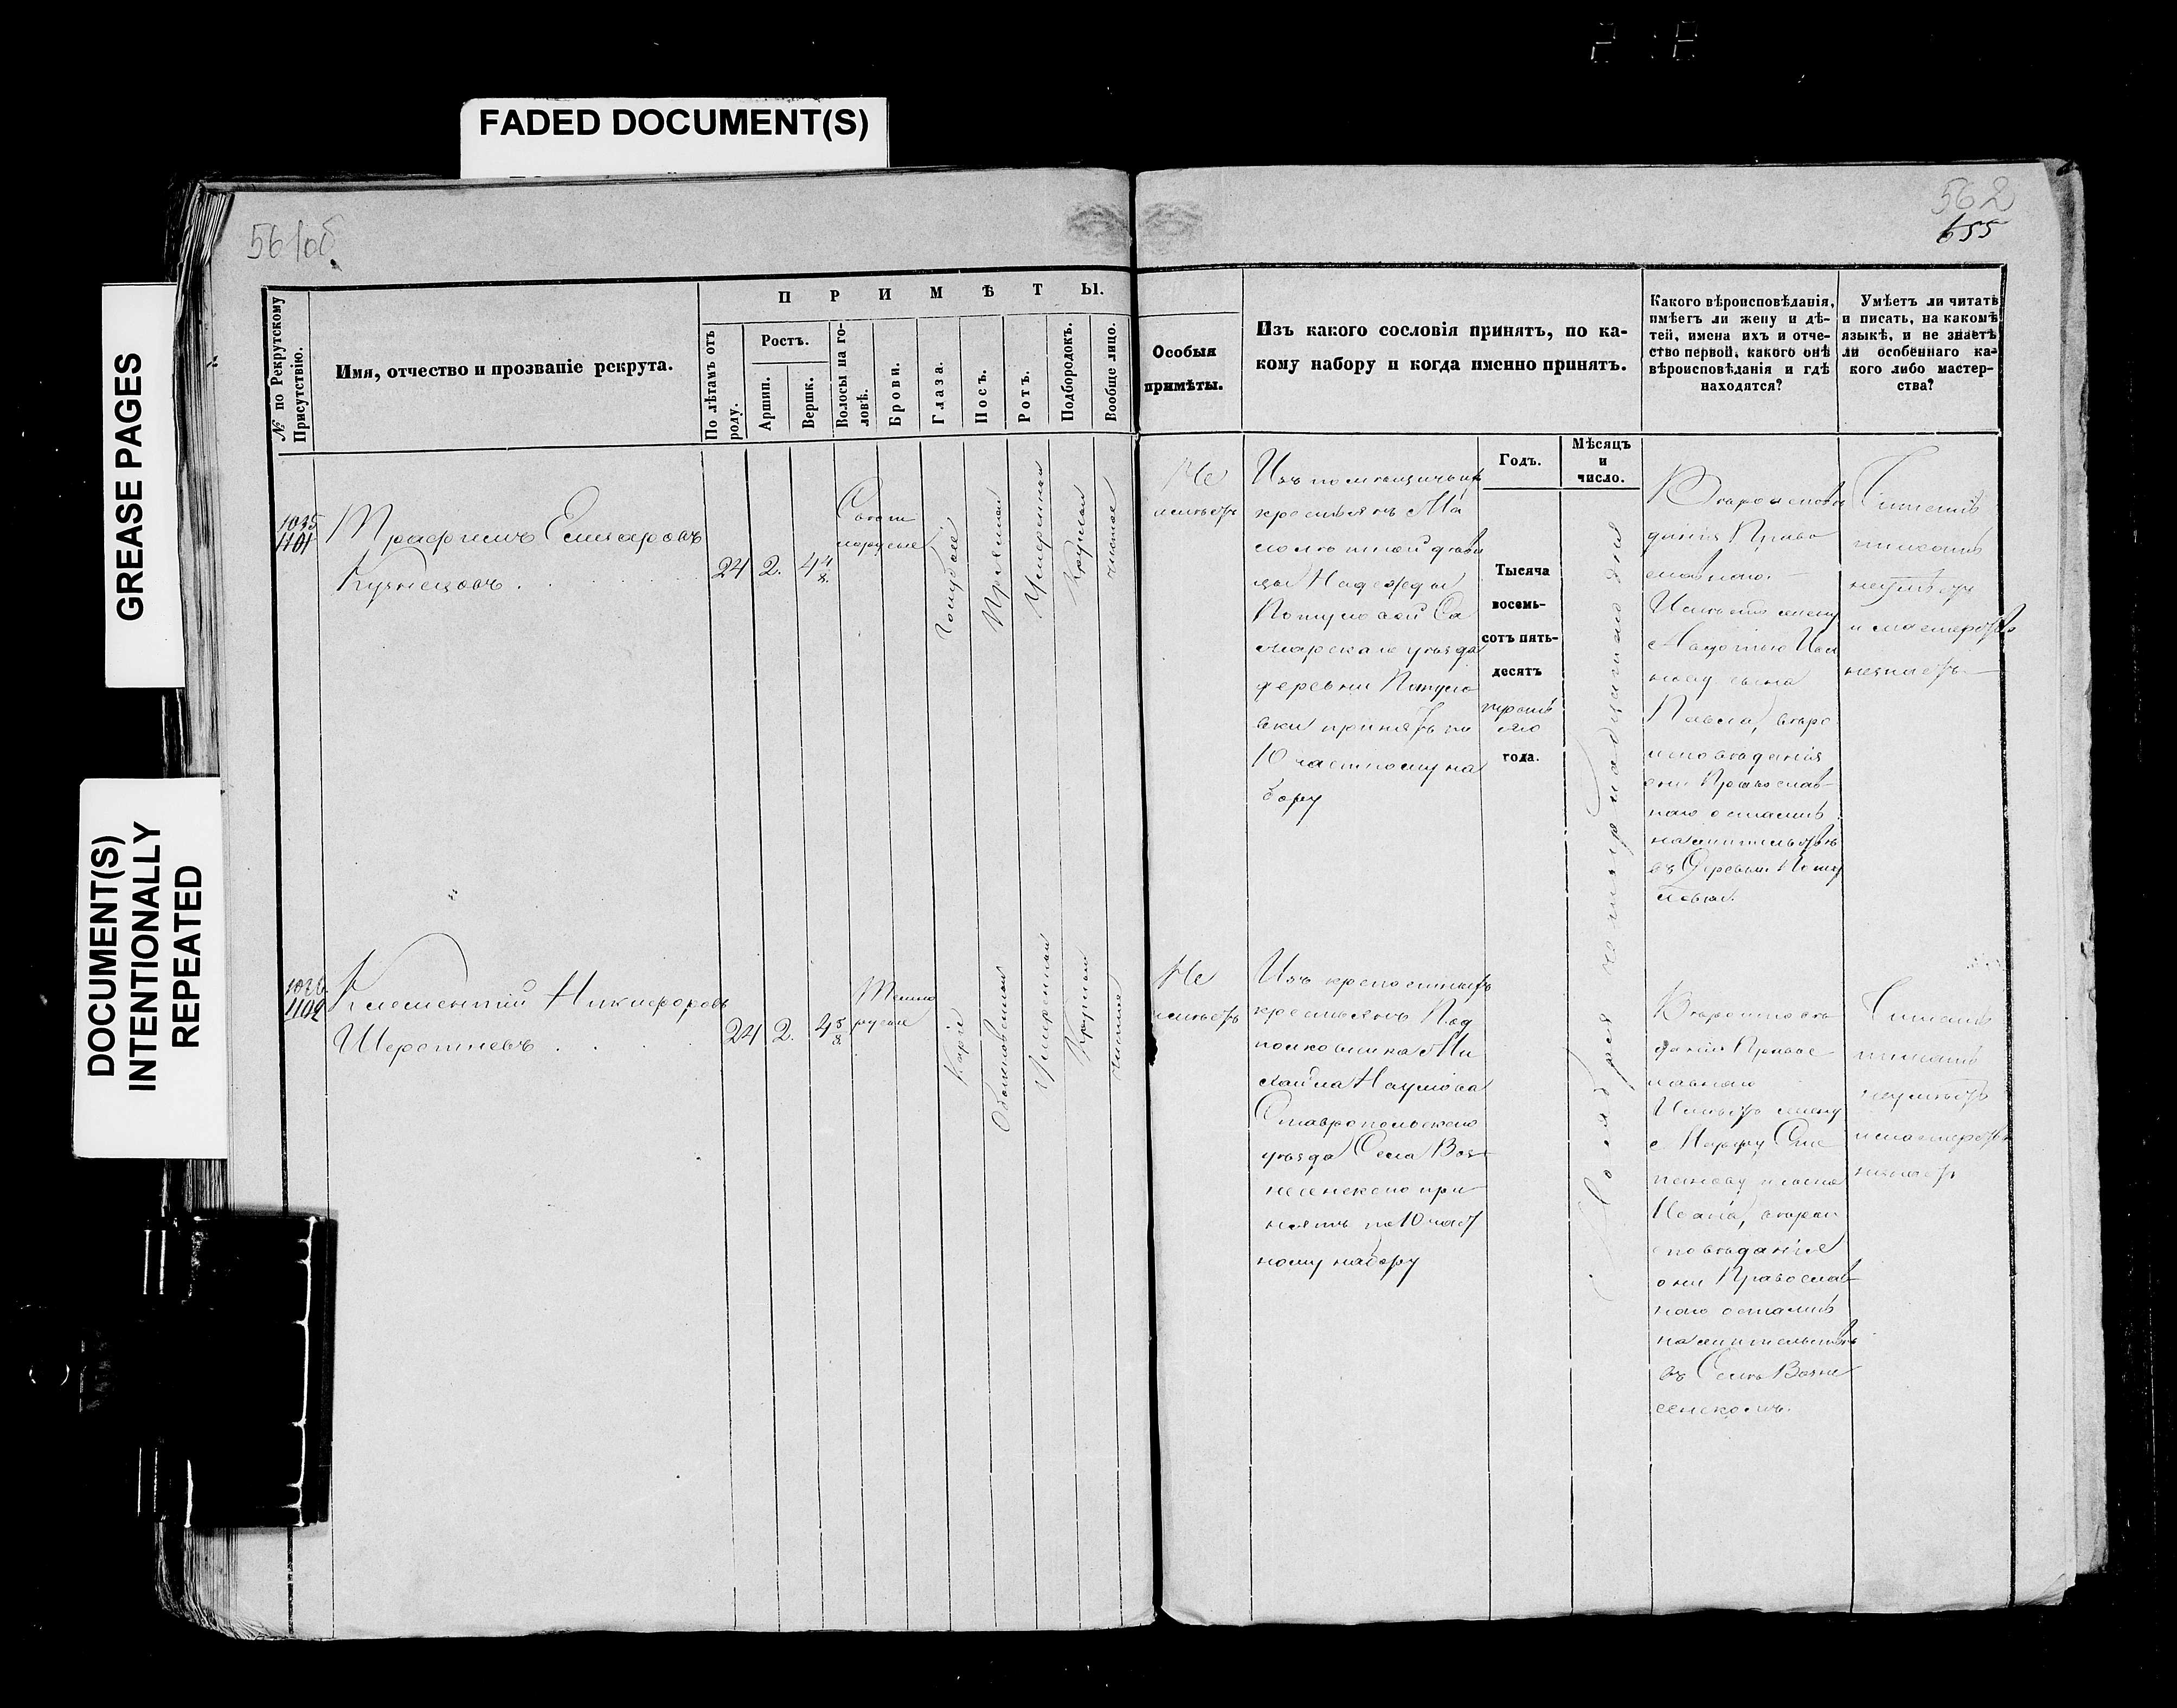 FADED DOCUMENT(S)
GREASE PAGES
DOCUMENT(S)
INTENTIONALLY
REPEATED
561об.
562
655
№ по Рекрутскому
Присутствію.
Имя, отчество и прозваніе рекрута.
П Р И М Ѣ Т Ы.
По лѣтамъ отъ
роду.
Ростъ.
Аршин.
Вершк.
Волосы на го-
ловѣ.
Брови.
Глаза.
Носъ.
Ротъ.
Подбородокъ.
Вообще лицо.
Особыя
примѣты.
Изъ какого сословія принятъ, по ка-
кому набору и когда именно принятъ.
Какого вѣроисповѣданія,
имѣетъ ли жену и дѣ-
тей, имена ихъ и отче-
ство первой, какого онѣ
вѣроисповѣданія и гдѣ
находятся?
Умѣетъ ли читать
и писать, на какомъ
языкѣ, и не знаетъ
ли особеннаго ка-
кого либо мастер-
ства?
Годъ.
Мѣсяцъ
и
число.
1101
Кузнецовъ.
24
2.
4 4/8
Свѣтло
русые
Голубые
Прямой
Умеренный
Круглый
чистое
Не
имѣетъ
Изъ помѣщичьихъ
крестьянъ Ма
лолѣтной дѣви
цы Надежды
Са
марскаго уѣзда
деревни
принятъ по
10 частному на
бору
Тысяча
восемь-
сотъ пять-
десятъ
третья
го
года.
Ноября четыренадцатаго дня
Вѣроисповѣ
данія Право
славнаго.
Имѣетъ жену
сына
Павла, вѣро
исповѣданія
они Православ
наго остались
на жительствѣ
въ Деревни
Читать
писать
неумѣетъ
и мастерства
незнаетъ
1102
Клементій Никифоровъ
24
2.
4 5/8
Темно
русые
Каріе
Обыкновенный
Умеренный
Круглый
чистое
Не
имѣетъ
Изъ крепостныхъ
крестьянъ Под
полковника Ми
хайла Наумова
Ставропольскаго
уѣзда Села Воз
несенскаго при
нятъ по 10 част
ному набору
Вѣроисповѣ
данія Правос
лавнаго
Имѣетъ жену
Марфу Сте
панову и сына
Ивана, вѣроис
повѣданія
они Православ
наго остались
на жительствѣ
въ Селѣ Возне
сенскомъ.
Читать
писать
неумѣетъ
и мастерства
незнаетъ